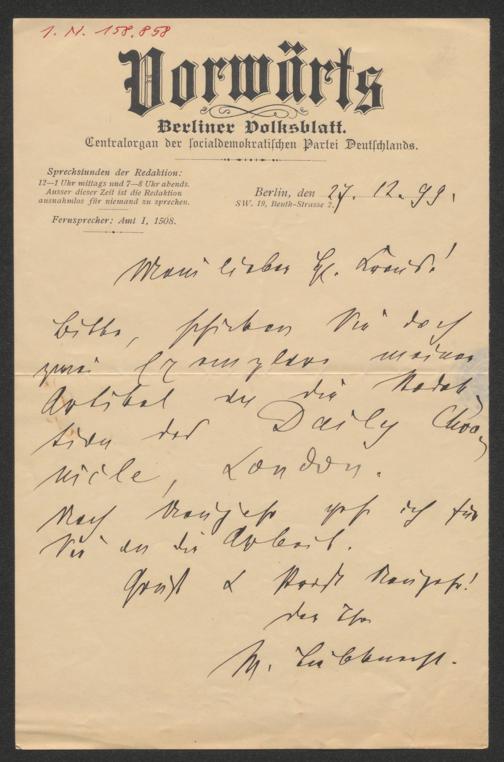 I. N. 158.858
Vorwärts
Berliner Volksblatt.
Centralorgan der socialdemokratischen Partei Deutschlands.
Sprechstunden der Redaktion:
12—1 Uhr mittags und 7—8 Uhr abends.
Ausser dieser Zeit ist die Redaktion
ausnahmlos für niemand zu sprechen.
Fernsprecher: Amt I, 1508.
Berlin, den 27. 12. 99.
SW. 19, Beuth-Strasse 2.
Mein lieber H. Kraus!
Bitte, schicken Sie doch
zwei Exemplare meiner
Artikel an die Redak-
tion des Daily Chro-
nicle, London.
Nach Neujahr geh ich für
Sie an die Arbeit.
Gruß & Prosit Neujahr!
Der Ihr
W. Liebknecht.